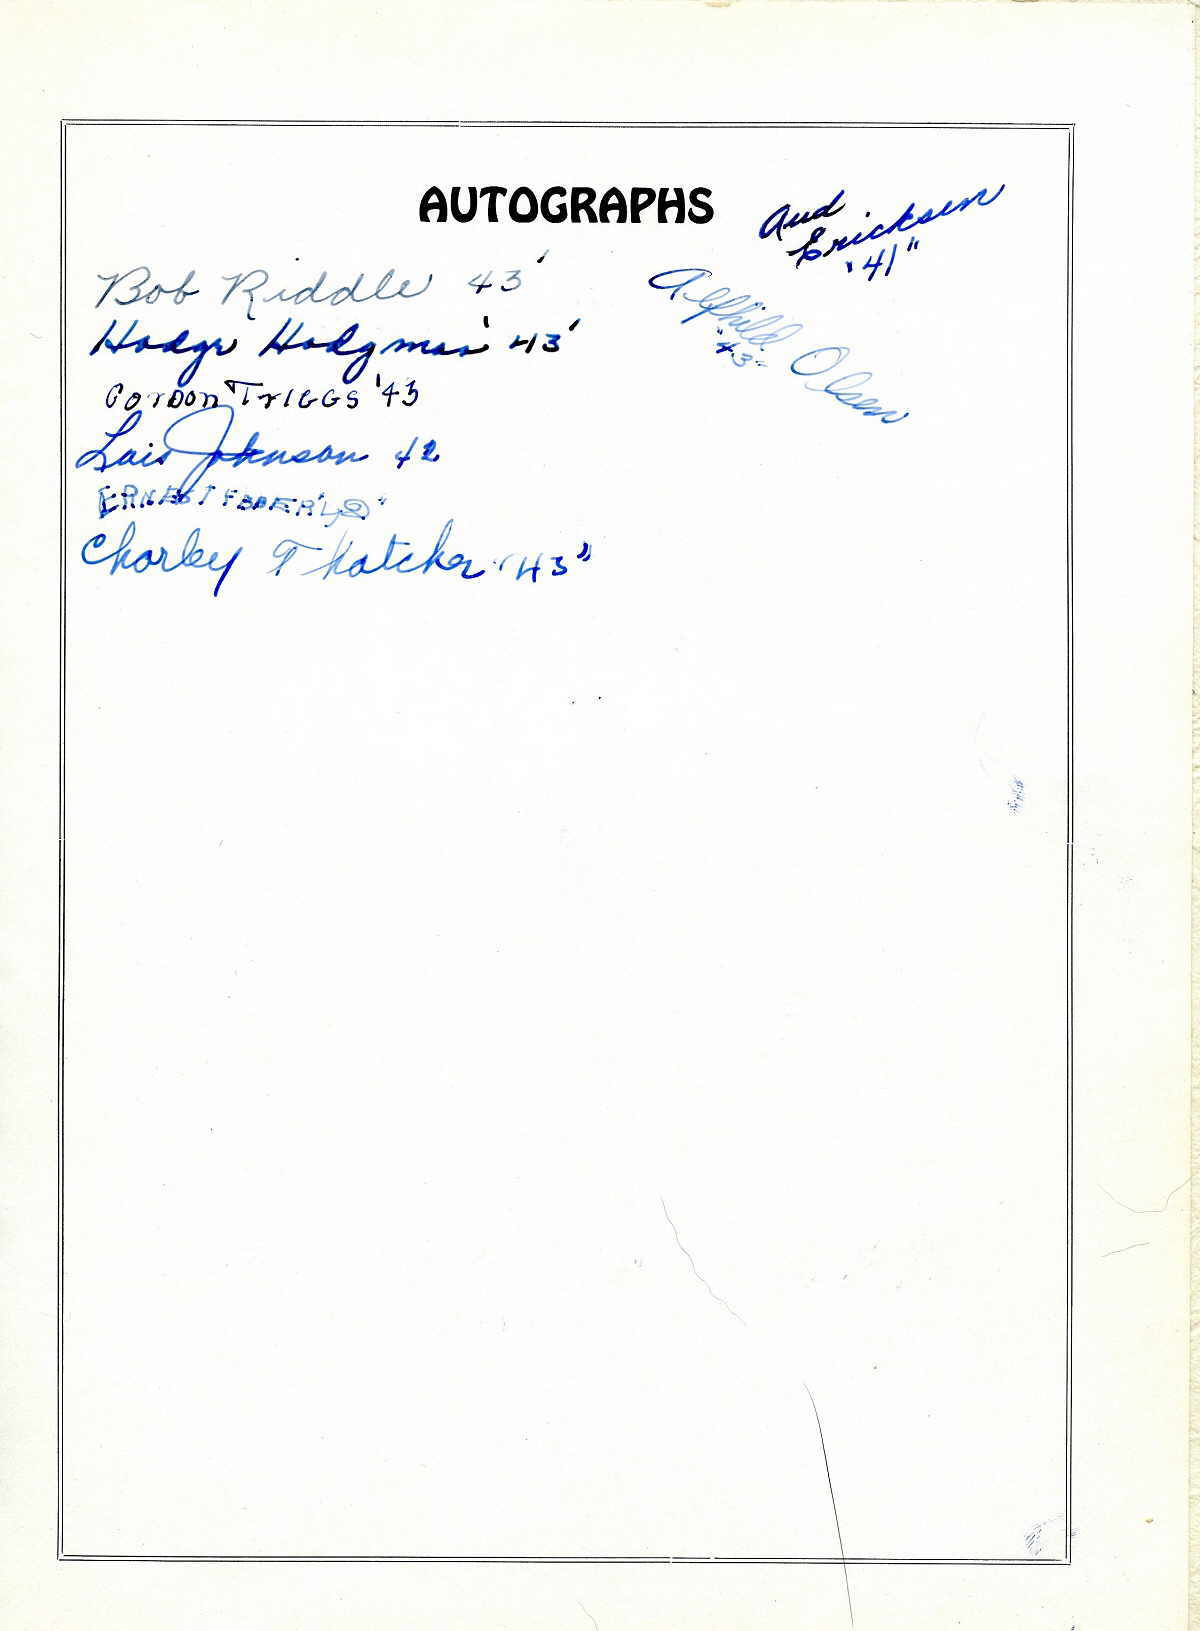 AUTOGRAPHS
Aud
Ericksen
"41"
Bob Riddle 43'
Alfhild Olsen
"43"
Hodge Hodgman' 43'
GORDON TRIGGS '43
Lois Johnson 42
ERNEST
Charley Thatcher "43"